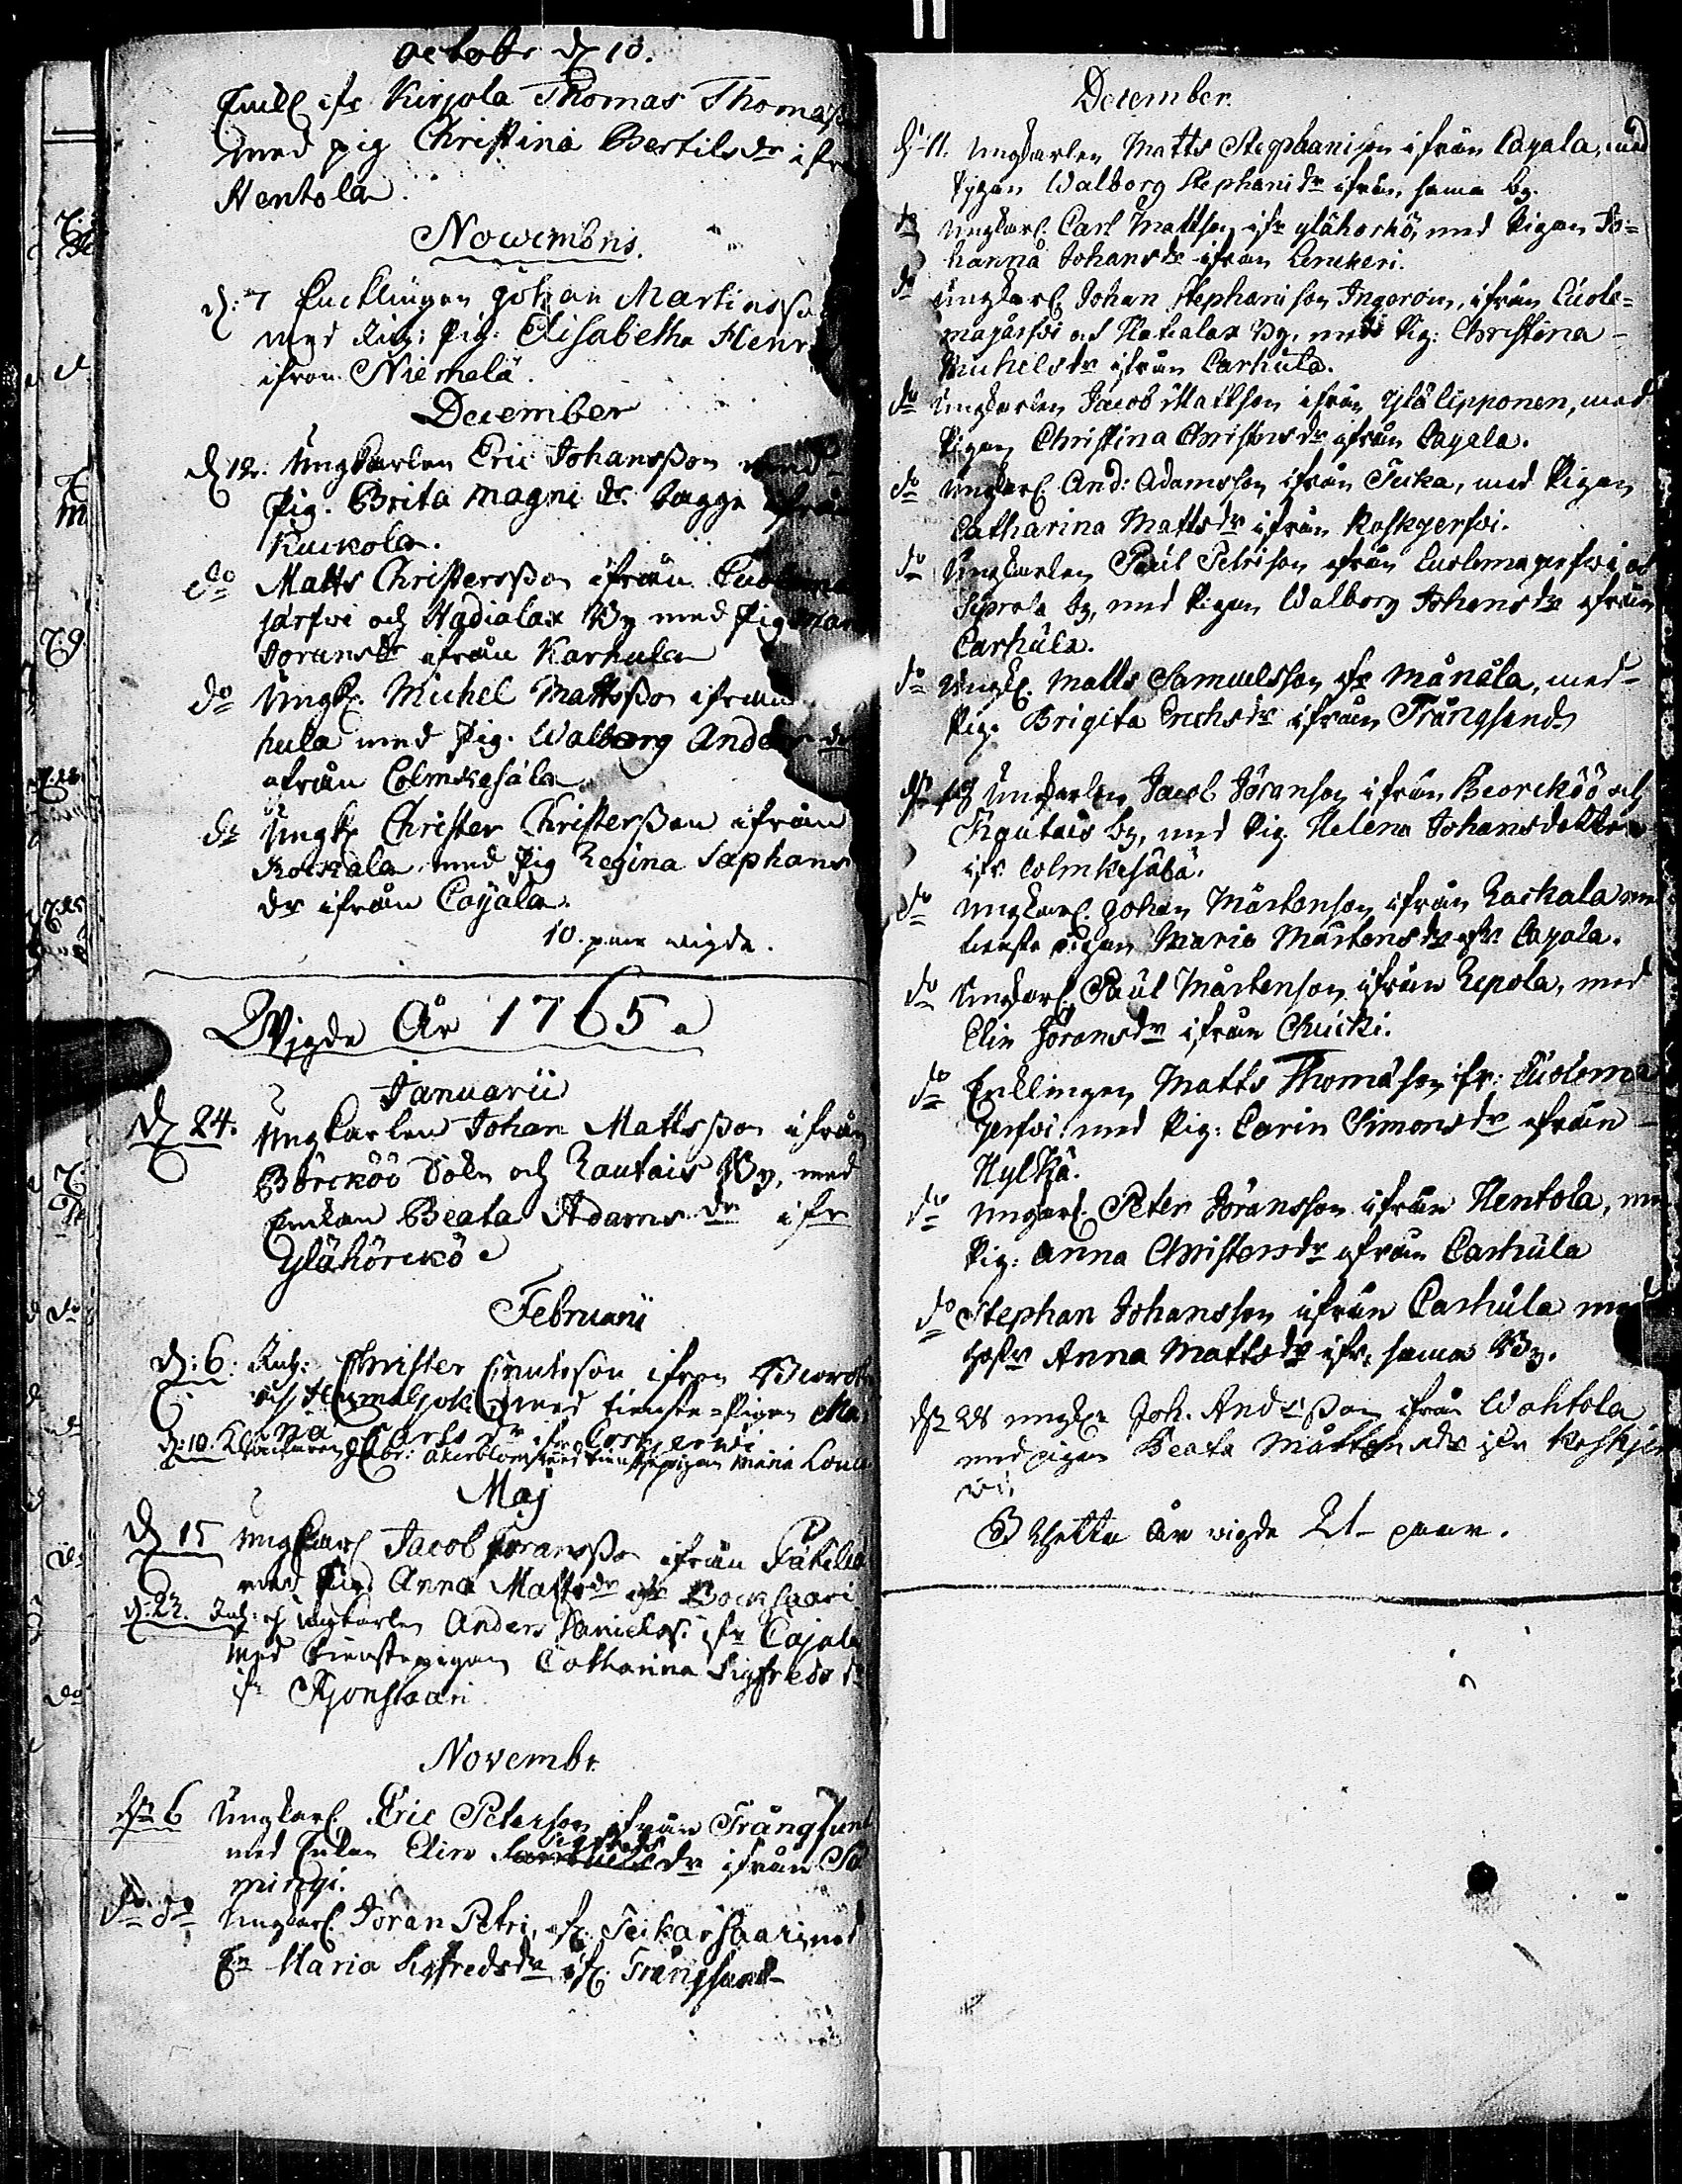 octobr d 10.
Enkl ifr Kirjola Thomas Thomass
med pig Christina Bertilsdr ifr
Hentola.
Nowembris.
d: 7 Encklingen Johan Martinsso
med pig: Elisabetha Henr
ifron Niemelä.
December
d 12. Ungkarlen Eric Johansson med
Pig. Brita Magni dr Bagge ifrån
Kuckola.
do Matts Christersson ifrån Cuolema
järfwi och Hadialax By med Pig Mar
Joransdr ifrån Karhula
do Ungk. Michel Mattsson ifrån
hula med Pig. Walborg Anders dr
ifrån Colmikesäla
do Ungk Christer Christersson ifrån
Rockala med Pig Regina Saphans
dr ifrån Cayala.
10. paar wigde.
Wigde År 1765
Januarii
d 24. Ungkarlen Johan Mattsson ifrån
Börcköö Sokn och Rautais By, med
Enkan Beata Adams dr ifr
Ylähörckö
Februarii
d: 6. Christer Cnutsson ifron
med tienste-Pigan Ma
na Larsdr ifr Corpjerwi
d: 10. Gabr: Åkerblom med tienstepigan Maria Lovisa
Maj
d 15 Ungkarl Jacob Joransson ifrån
med Pig. Anna Mattsdr ifr Bocksaari
d. 22. Ungkarlen Anders Danielss: ifr Cajala
med tienstepigan Catharina Sigfreds dr
ifr Rjonsaari
Novembr.
d 6 Ungkarl. Eric Peterson ifrån Trångsund
med Enkan Elin Sigfreds dr ifrån So
mingi.
do do Ungkarl. Joran Petri, ifr Teikarsaari, med
Maria Sigfredsdr ifr Trångsund
December.
d. 11. Ungkarlen Matts Stephanison ifrån Cayala, med
Pigan Walborg Stephanidr ifrån sama by.
do Ungkarl. Carl Mattson ifr Ylähorkö, med Pigan Jo=
hanna Johansdr ifrån Lenckeri.
do Ungkarl. Johan Stephanison Ingeroin, ifrån Cuole=
majärfwi och Hatialax By, med Pig: Christina
Michelsdr ifrån Carhula.
do Ungkarlen Jacob Mattson ifrån Ylälipponen, med
Pigan Christina Christersdr ifrån Cayala.
do Ungkarl. And: Adamsson ifrån Teika, med Pigan
Catharina Mattsdr ifrån Koskyerfwi.
do Ungkarlen Paul Petrison ifrån Cuolemayerfwi och
Seprola by, med Pigan Walborg Johansdr ifrån
Carhula.
do Ungk. Matts Samuelsson ifr Månåla, med
Pig. Brigita Erichsdr ifrån Trångsund
Ungkarlen Jacob Joranson ifrån Beorcköö och
Rautais by, med Pig. Helena Johansdotter
ifr Colmkesälä.
do Ungkarl. Johan Mårtenson ifrån Rackala med
tienste Pigan Maria Mårtensdr ifr Cayala.
do Ungkarl. Paul Mårtenson ifrån Repola, med
Elin Joransdr ifrån Chucki.
do Encklingen Matts Thomasson ifr: Cuolema
yerfwi med Pig: Carin Simonsdr ifrån
Hylkä.
do Ungkarl. Peter Joransson ifrån Hentola, med
Pig: Anna Christersdr ifrån Carhula
do Stephan Johansson ifrån Carhula med
Anna Mattsdr ifr: sama By.
Ungk Joh. Andersson ifrån Wahtola
med pigan Beata Mårtensdr ifr Koskjer
wi
Thetta År wigde 21- paar.